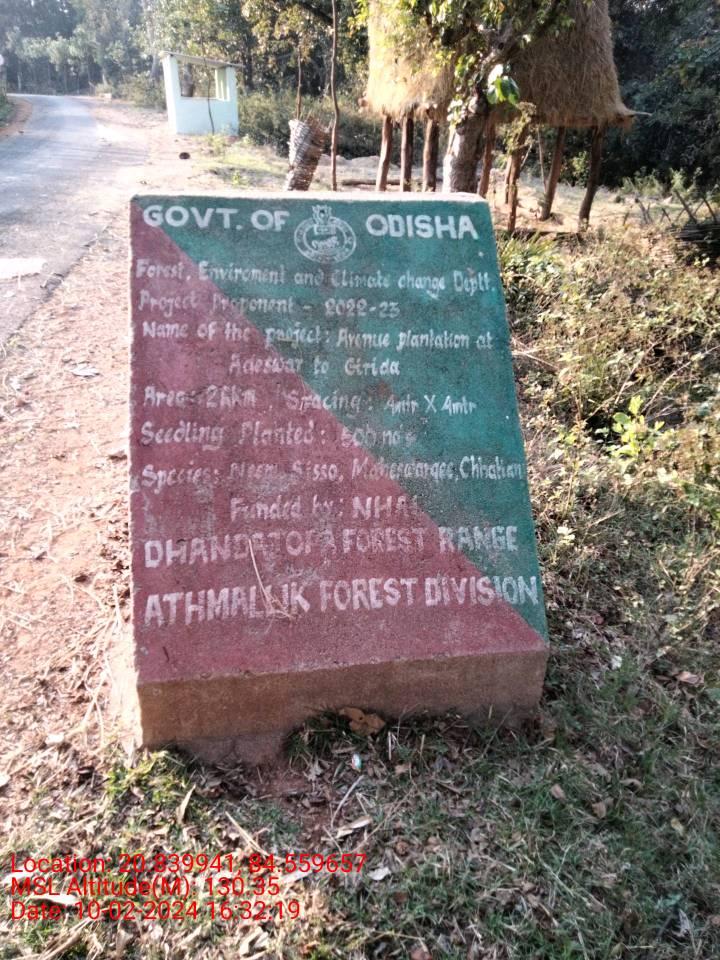 GOVT. OF ODISHA
Forest, Enviroment and Climate change Deptt.
Project Proponent - 2022-23
Name of the project: Avenue plantation at
Adeswar to Girida
Area: Spacing: 4mtr X 4mtr
Seedling Planted: no's
Species: Neem, Sisso, Chhatian
Funded by: NHAI
DHANDATOPA FOREST RANGE
ATHMALLIK FOREST DIVISION
Location: 20.839941, 84.559657
MSL Altitude(M): 130.35
Date: 10-02-2024 16:32:19